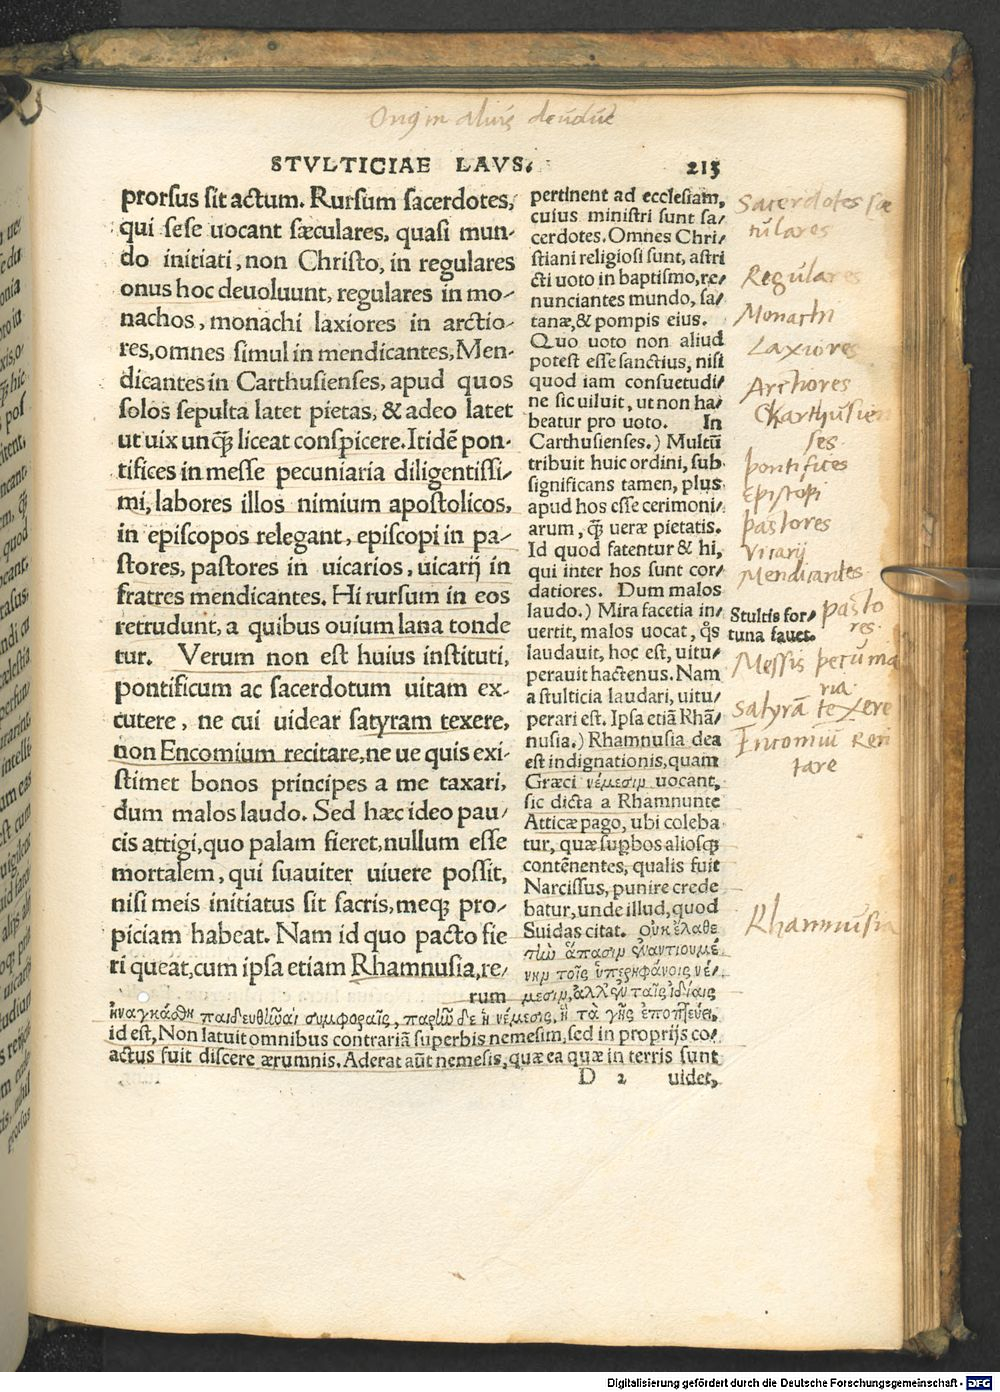 STVLTICIAE LAVS. 213
prorsus sit actum. Rursum sacerdotes,
qui sese uocant sæculares, quasi mun-
do initiati, non Christo, in regulares
onus hoc deuoluunt, regulares in mo-
nachos, monachi laxiores in arctio-
res, omnes simul in mendicantes, Men-
dicantes in Carthusienses, apud quos
solos sepulta latet pietas, & adeo latet
ut uix unq̃ liceat conspicere. Itidẽ pon-
tifices in messe pecuniaria diligentissi-
mi, labores illos nimium apostolicos,
in episcopos relegant, episcopi in pa-
stores, pastores in uicarios, uicarij in
fratres mendicantes. Hi rursum in eos
retrudunt, a quibus ouium lana tonde
tur. Verum non est huius instituti,
pontificum ac sacerdotum uitam ex-
cutere, ne cui uidear satyram texere,
non Encomium recitare, ne ue quis exi-
stimet bonos principes a me taxari,
dum malos laudo. Sed hæc ideo pau-
cis attigi, quo palam fieret, nullum esse
mortalem, qui suauiter uiuere possit,
nisi meis initiatus sit sacris, meq; pro-
piciam habeat. Nam id quo pacto fie
ri queat, cum ipsa etiam Rhamnusia, re-
rum
pertinent ad ecclesiam,
cuius ministri sunt sa-
cerdotes. Omnes Chri-
stiani religiosi sunt, astri
cti uoto in baptismo, re-
nunciantes mundo, sa-
tanæ, & pompis eius.
Quo uoto non aliud
potest esse sanctius, nisi
quod iam consuetudi-
ne sic uiluit, ut non ha-
beatur pro uoto. In
Carthusienses.) Multũ
tribuit huic ordini, sub
significans tamen, plus
apud hos esse cerimoni-
arum, q̃ ueræ pietatis.
Id quod fatentur & hi,
qui inter hos sunt cor-
datiores. Dum malos
laudo.) Mira facetia in-
uertit, malos uocat, q̃s
laudauit, hoc est, uitu-
perauit hactenus. Nam
a stulticia laudari, uitu-
perari est. Ipsa etiã Rhã-
nusia.) Rhamnusia dea
est indignationis, quam
Græci νέμεσιν uocant,
sic dicta a Rhamnunte
Atticæ pago, ubi coleba
tur, quæ supbos aliosq;
contẽnentes, qualis fuit
Narcissus, punire crede
batur, unde illud, quod
Suidas citat. Οὐκ ἔλαθε
τῶν ἅπασιν ἐναντιουμέ
νην τοῖς ὑπερηφάνοις νέ-
μεσιν, ἀλλ' ἐν ταῖς ἰδίαις
ἠναγκάσθη παιδευθῆναι συμφοραῖς, παρῆν δὲ ἡ νέμεσις, ἡ τὰ γῆς ἐποπτεύει,
id est, Non latuit omnibus contrariã superbis nemesim, sed in proprijs co-
actus fuit discere ærumnis. Aderat aũt nemesis, quæ ea quæ in terris sunt
D 2 uidet,
Sacerdotes sæ
culares
Regulares
Monachi
Laxiores
Arctiores
Charthusien
ses.
pontifices
Episcopi
pastores
Vicarij
Mendicantes
pasto
res.
Stultis for-
tuna fauet.
Messis pecunia
ria.
Satyrã texere
Encomiũ reci
tare
Rhamnusia
Digitalisierung gefördert durch die Deutsche Forschungsgemeinschaft - DFG